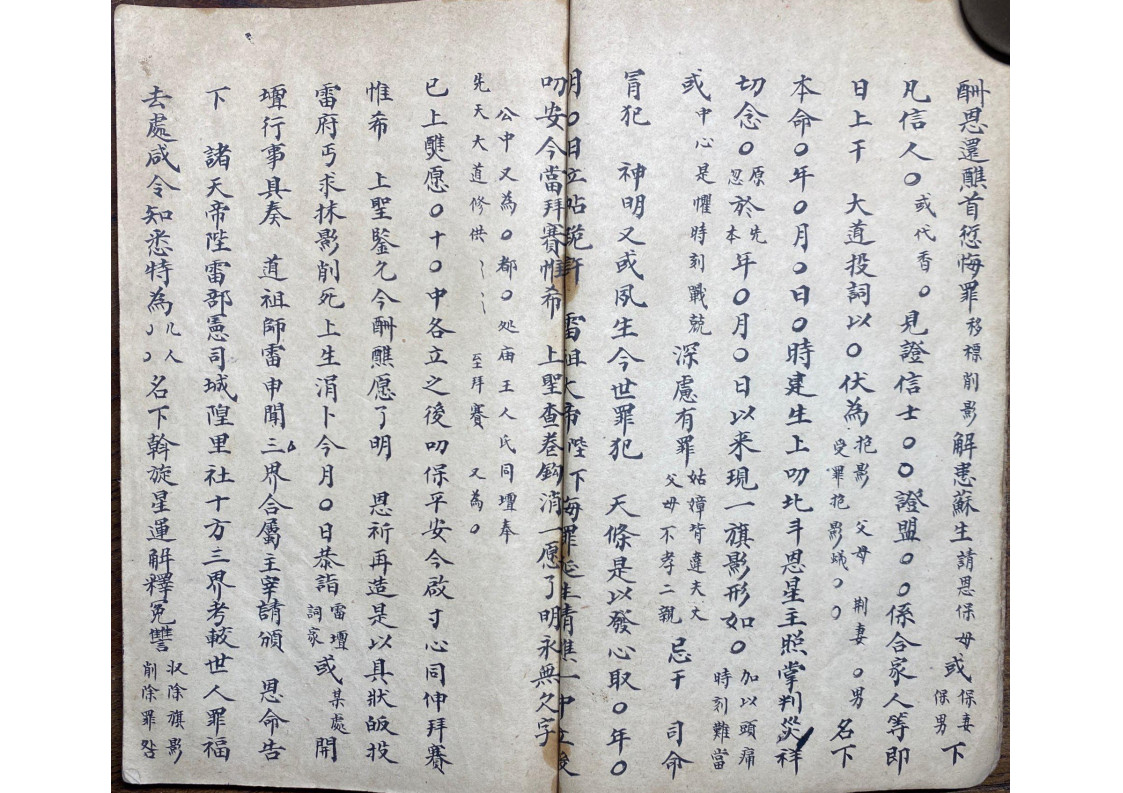 酬恩還醮首愆悔罪移標削影解患蘇生請恩保母或保妻保男下
凡信人〇或代香〇見證信士〇〇證盟〇〇係合家人等即
日上干 大道投詞以〇伏為抱影受罪抱影蟻〇〇父母荆妻〇男名下
本命〇年〇月〇日〇時建生上叨北斗恩星主照掌判災祥
切念〇原忽於先本年〇月〇日以来現一旗影形如〇加以頭痛時刻難當
或中心是懼時刻戰兢深慮有罪姑嫜背違夫丈父母不孝二親忌干 司命
冐犯 神明又或夙生今世罪犯 天條是以發心取〇年〇
月〇日立帖説許 雷祖大帝陛下悔罪延生請醮一中立後
叨安今當拜賽惟希 上聖查卷鈎消一愿了明永無欠字
公中又為〇都〇处庙王人氏同壇奉
先天大道修供 至拜賽 又為〇
已上醮愿〇十〇中各立之後叨保平安今啟寸心同伸拜賽
惟希 上聖鑒允今酬醮愿了明 恩祈再造是以具狀皈投
雷府丐求抹影削死上生涓卜今月〇日恭詣雷壇詞家或某處開
壇行事具奏 道祖師雷申聞三界合屬主宰請頒 恩命告
下 諸天帝陛雷部憲司城隍里社十方三界考較世人罪福
去處咸令知悉特為凡人〇〇名下斡旋星運解釋冤讐收除旗影削除罪咎